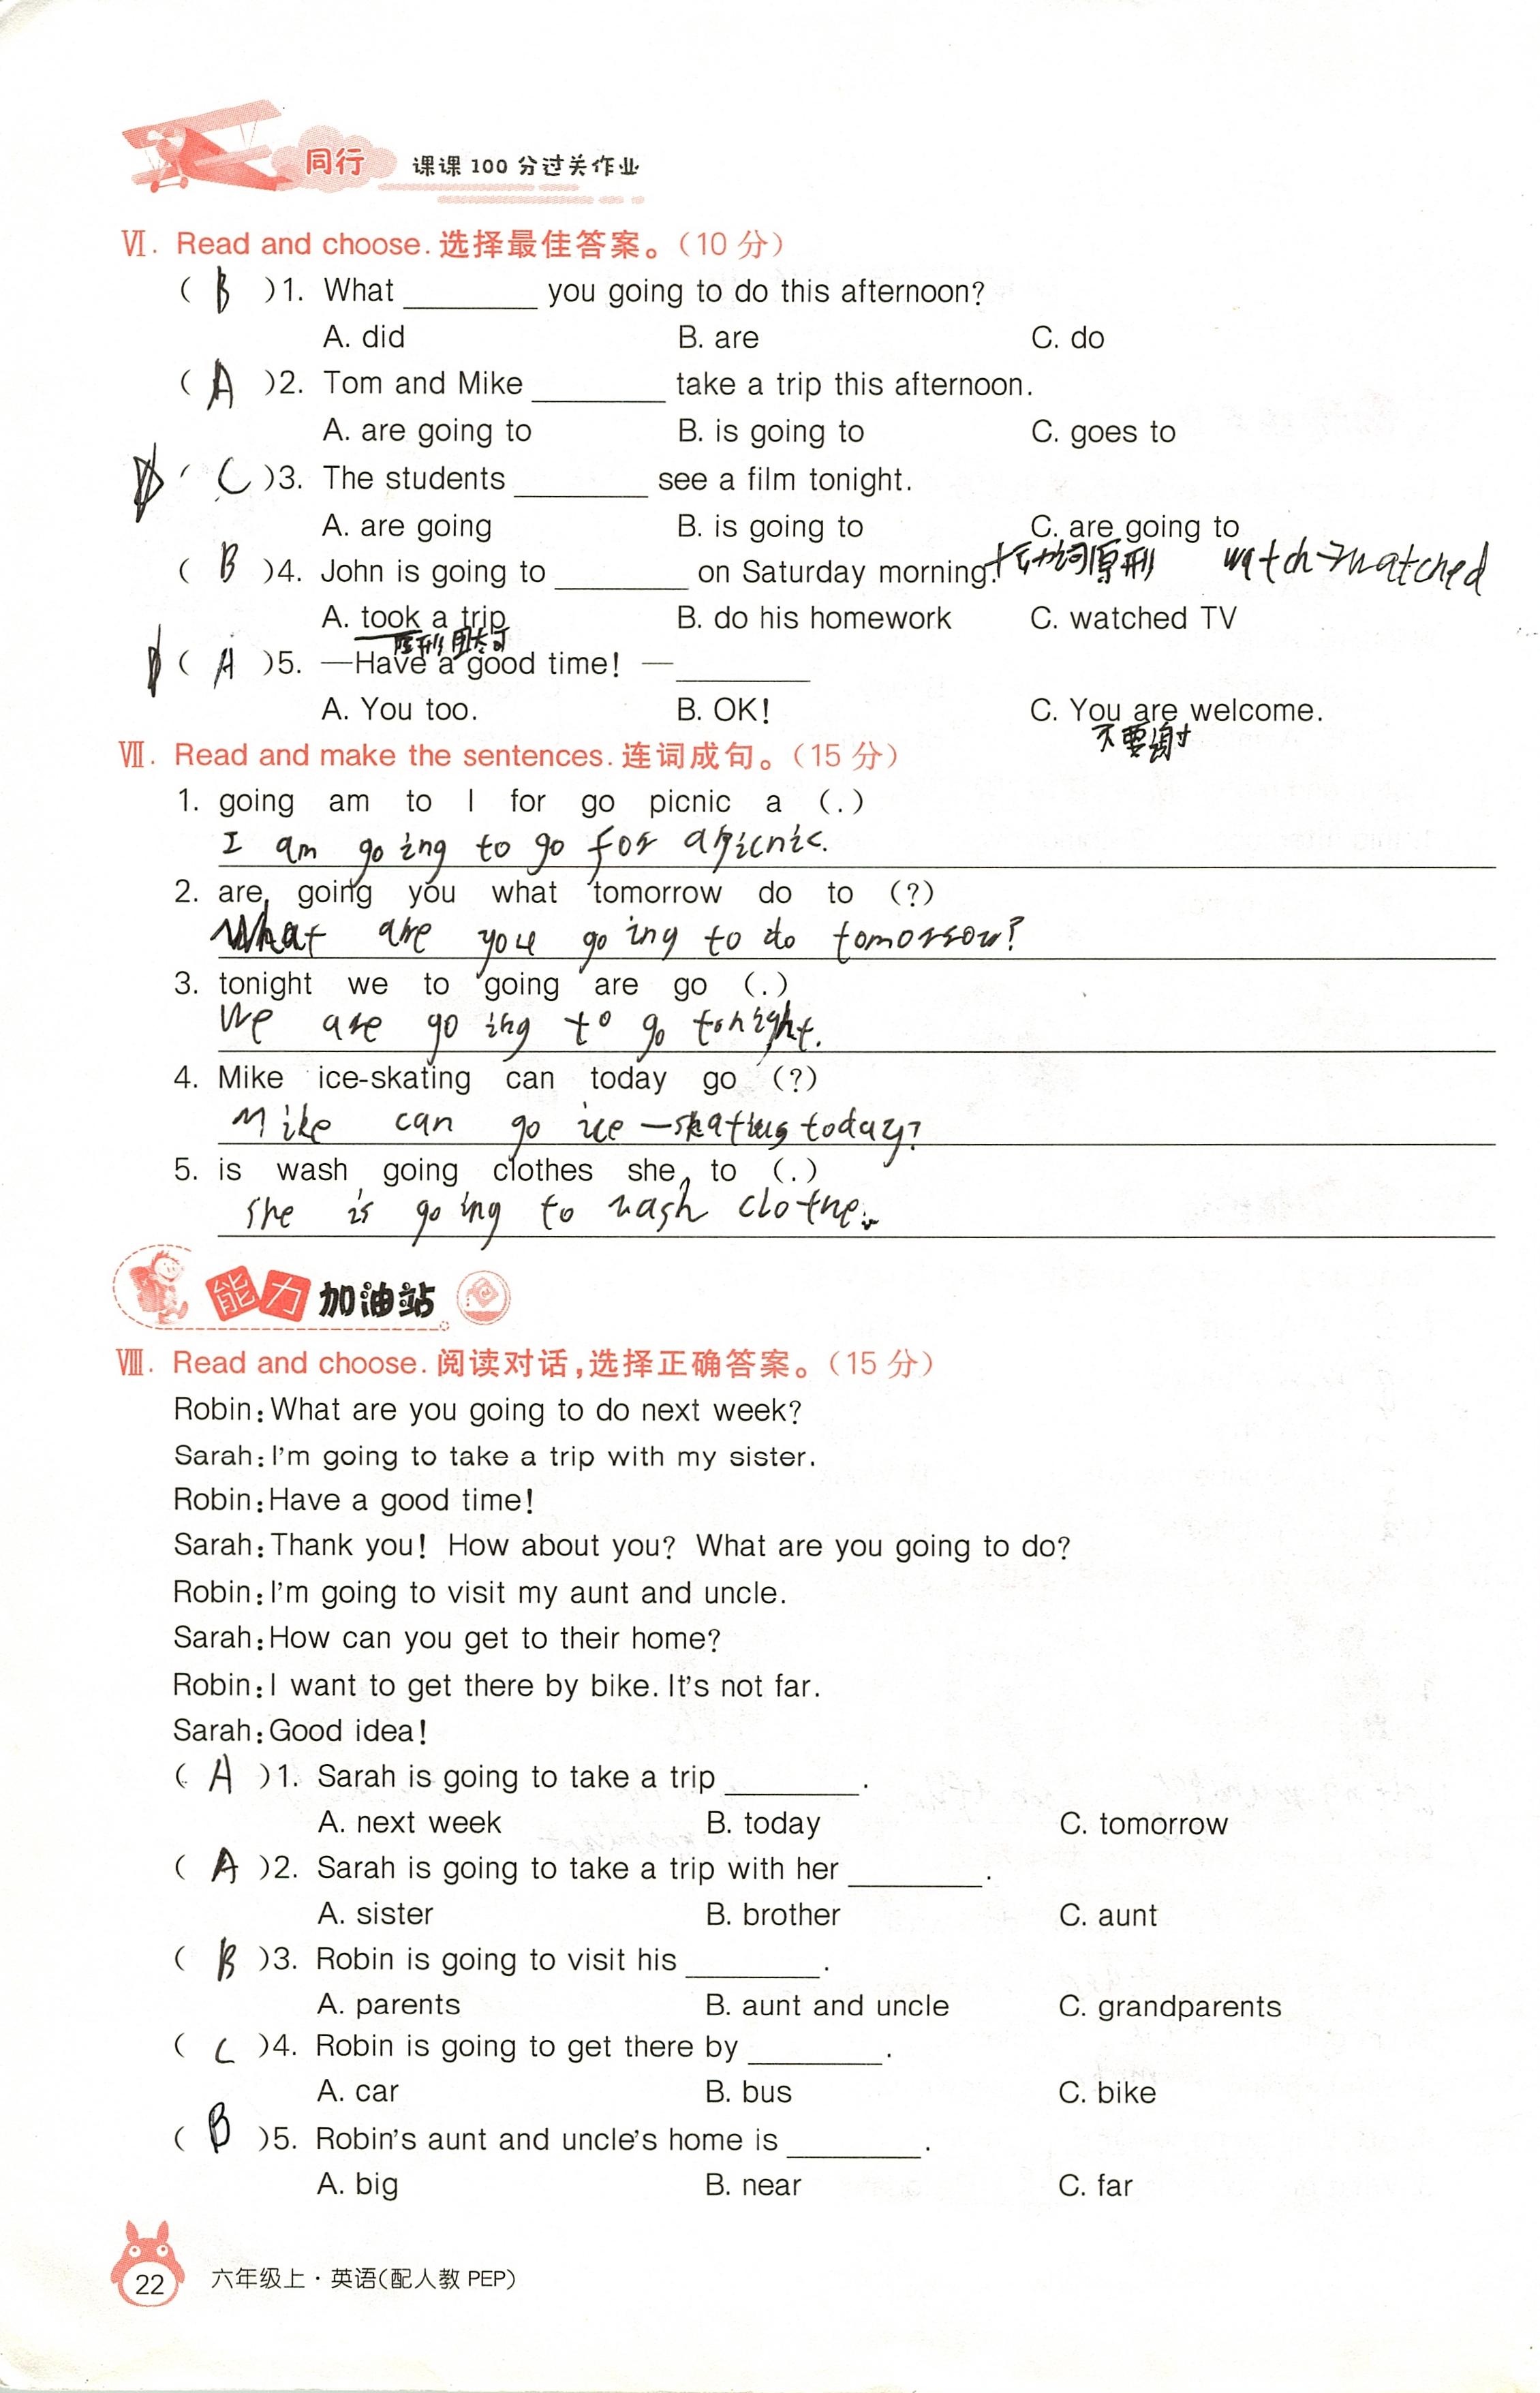 同行 课课100分过关作业
Ⅵ. Read and choose. 选择最佳答案。(10分)
( B )1. What ________ you going to do this afternoon?
A. did B. are C. do
( A )2. Tom and Mike ________ take a trip this afternoon.
A. are going to B. is going to C. goes to
( C )3. The students ________ see a film tonight.
A. are going B. is going to C. are going to
( B )4. John is going to ________ on Saturday morning. +动词原形 watch→watched
A. took a trip B. do his homework C. watched TV
原形
( A )5. —Have a good time! —________
A. You too. B. OK! C. You are welcome.
不要谢
Ⅶ. Read and make the sentences. 连词成句。(15分)
1. going am to I for go picnic a (.)
I am going to go for a picnic.
2. are going you what tomorrow do to (?)
What are you going to do tomorrow?
3. tonight we to going are go (.)
We are going to go tonight.
4. Mike ice-skating can today go (?)
Mike can go ice-skating today?
5. is wash going clothes she to (.)
she is going to wash clothe.
能力加油站
Ⅷ. Read and choose. 阅读对话,选择正确答案。(15分)
Robin: What are you going to do next week?
Sarah: I'm going to take a trip with my sister.
Robin: Have a good time!
Sarah: Thank you! How about you? What are you going to do?
Robin: I'm going to visit my aunt and uncle.
Sarah: How can you get to their home?
Robin: I want to get there by bike. It's not far.
Sarah: Good idea!
( A )1. Sarah is going to take a trip ________.
A. next week B. today C. tomorrow
( A )2. Sarah is going to take a trip with her ________.
A. sister B. brother C. aunt
( B )3. Robin is going to visit his ________.
A. parents B. aunt and uncle C. grandparents
( C )4. Robin is going to get there by ________.
A. car B. bus C. bike
( B )5. Robin's aunt and uncle's home is ________.
A. big B. near C. far
22 六年级上·英语(配人教PEP)